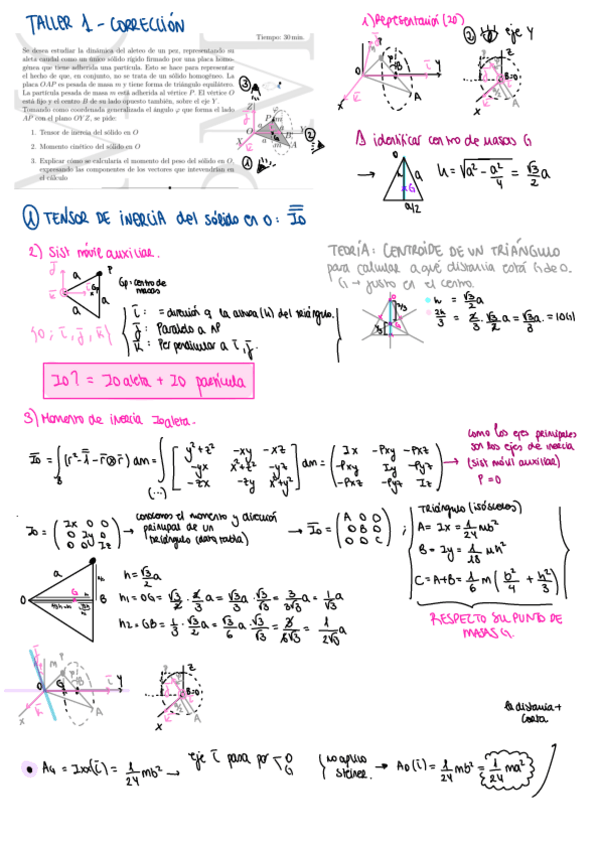 TALLER 1 - CORRECCIÓN
Tiempo: 30 min.
Se desea estudiar la dinámica del aleteo de un pez, representando su
aleta caudal como un único sólido rígido formado por una placa homo-
génea que tiene adherida una partícula. Esto se hace para representar
el hecho de que, en conjunto, no se trata de un sólido homogéneo. La
placa OAP es pesada de masa m y tiene forma de triángulo equilátero.
La partícula pesada de masa m está adherida al vértice P. El vértice O
está fijo y el centro B de su lado opuesto también, sobre el eje Y.
Tomando como coordenada generalizada el ángulo φ que forma el lado
AP con el plano OYZ, se pide:
1. Tensor de inercia del sólido en O
2. Momento cinético del sólido en O
3. Explicar cómo se calcularía el momento del peso del sólido en O,
expresando las componentes de los vectores que intervendrían en
el cálculo
1) Representación (20)
② eje Y
③
②
①
identificar centro de masas G
h = √(a² - a²/4) = √3/2 a
a/2
① TENSOR DE INERCIA del sólido en O: I̿o
2) Sist móvil auxiliar.
Gp = centro de masas
{O; i, j, k}
i : = dirección q la altura (h) del triángulo.
j : Paralelo a AP
k : Perpendicular a i, j.
TEORÍA: CENTROIDE DE UN TRIÁNGULO
para calcular a qué distancia está G de O.
G → justo en el centro.
h = √3/2 a
2h/3 = 2/3 · √3/2 a = √3a/3 = |OG|
Io? = Io aleta + Io partícula
3) Momento de inercia Io aleta.
Io = ∫ (r²·1 - r⊗r) dm = ∫ [y²+z² -xy -xz; -yx x²+z² -yz; -zx -zy x²+y²] dm = (Ix -Pxy -Pxz; -Pxy Iy -Pyz; -Pxz -Pyz Iz) →
(...)
como los ejes principales
son los ejes de inercia
(sist móvil auxiliar)
P = 0
Io = (Ix 0 0; 0 Iy 0; 0 0 Iz) → conocemos el momento y dirección principal de un triángulo (dara tabla) → Io = (A 0 0; 0 B 0; 0 0 C) ;
Triángulo (isósceles)
A = Ix = 1/24 mb²
B = Iy = 1/18 mh²
C = A+B = 1/6 m (b²/4 + h²/3)
RESPECTO SU PUNTO DE
MASAS G.
h = √3a/2
h1 = OG = √3/2 · 2/3 a = √3a/3 · √3/√3 = 3/3√3 a = 1/√3 a
h2 = GB = 1/3 · √3/2 a = √3/6 a · √3/√3 = 3/6√3 = 1/2√3 a
la distancia +
corta
• AG = Ixx(i) = 1/24 mb² → eje i pasa por O G { no aplico steiner → AO(i) = 1/24 mb² = 1/24 ma²